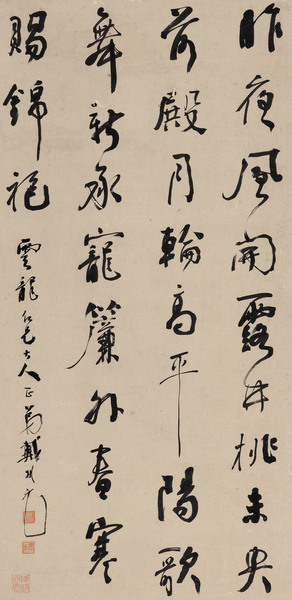 昨夜風開露井桃未央
前殿月輪高平陽歌
舞新承寵簾外春寒
賜錦袍
雲龍仁兄大人正 戴